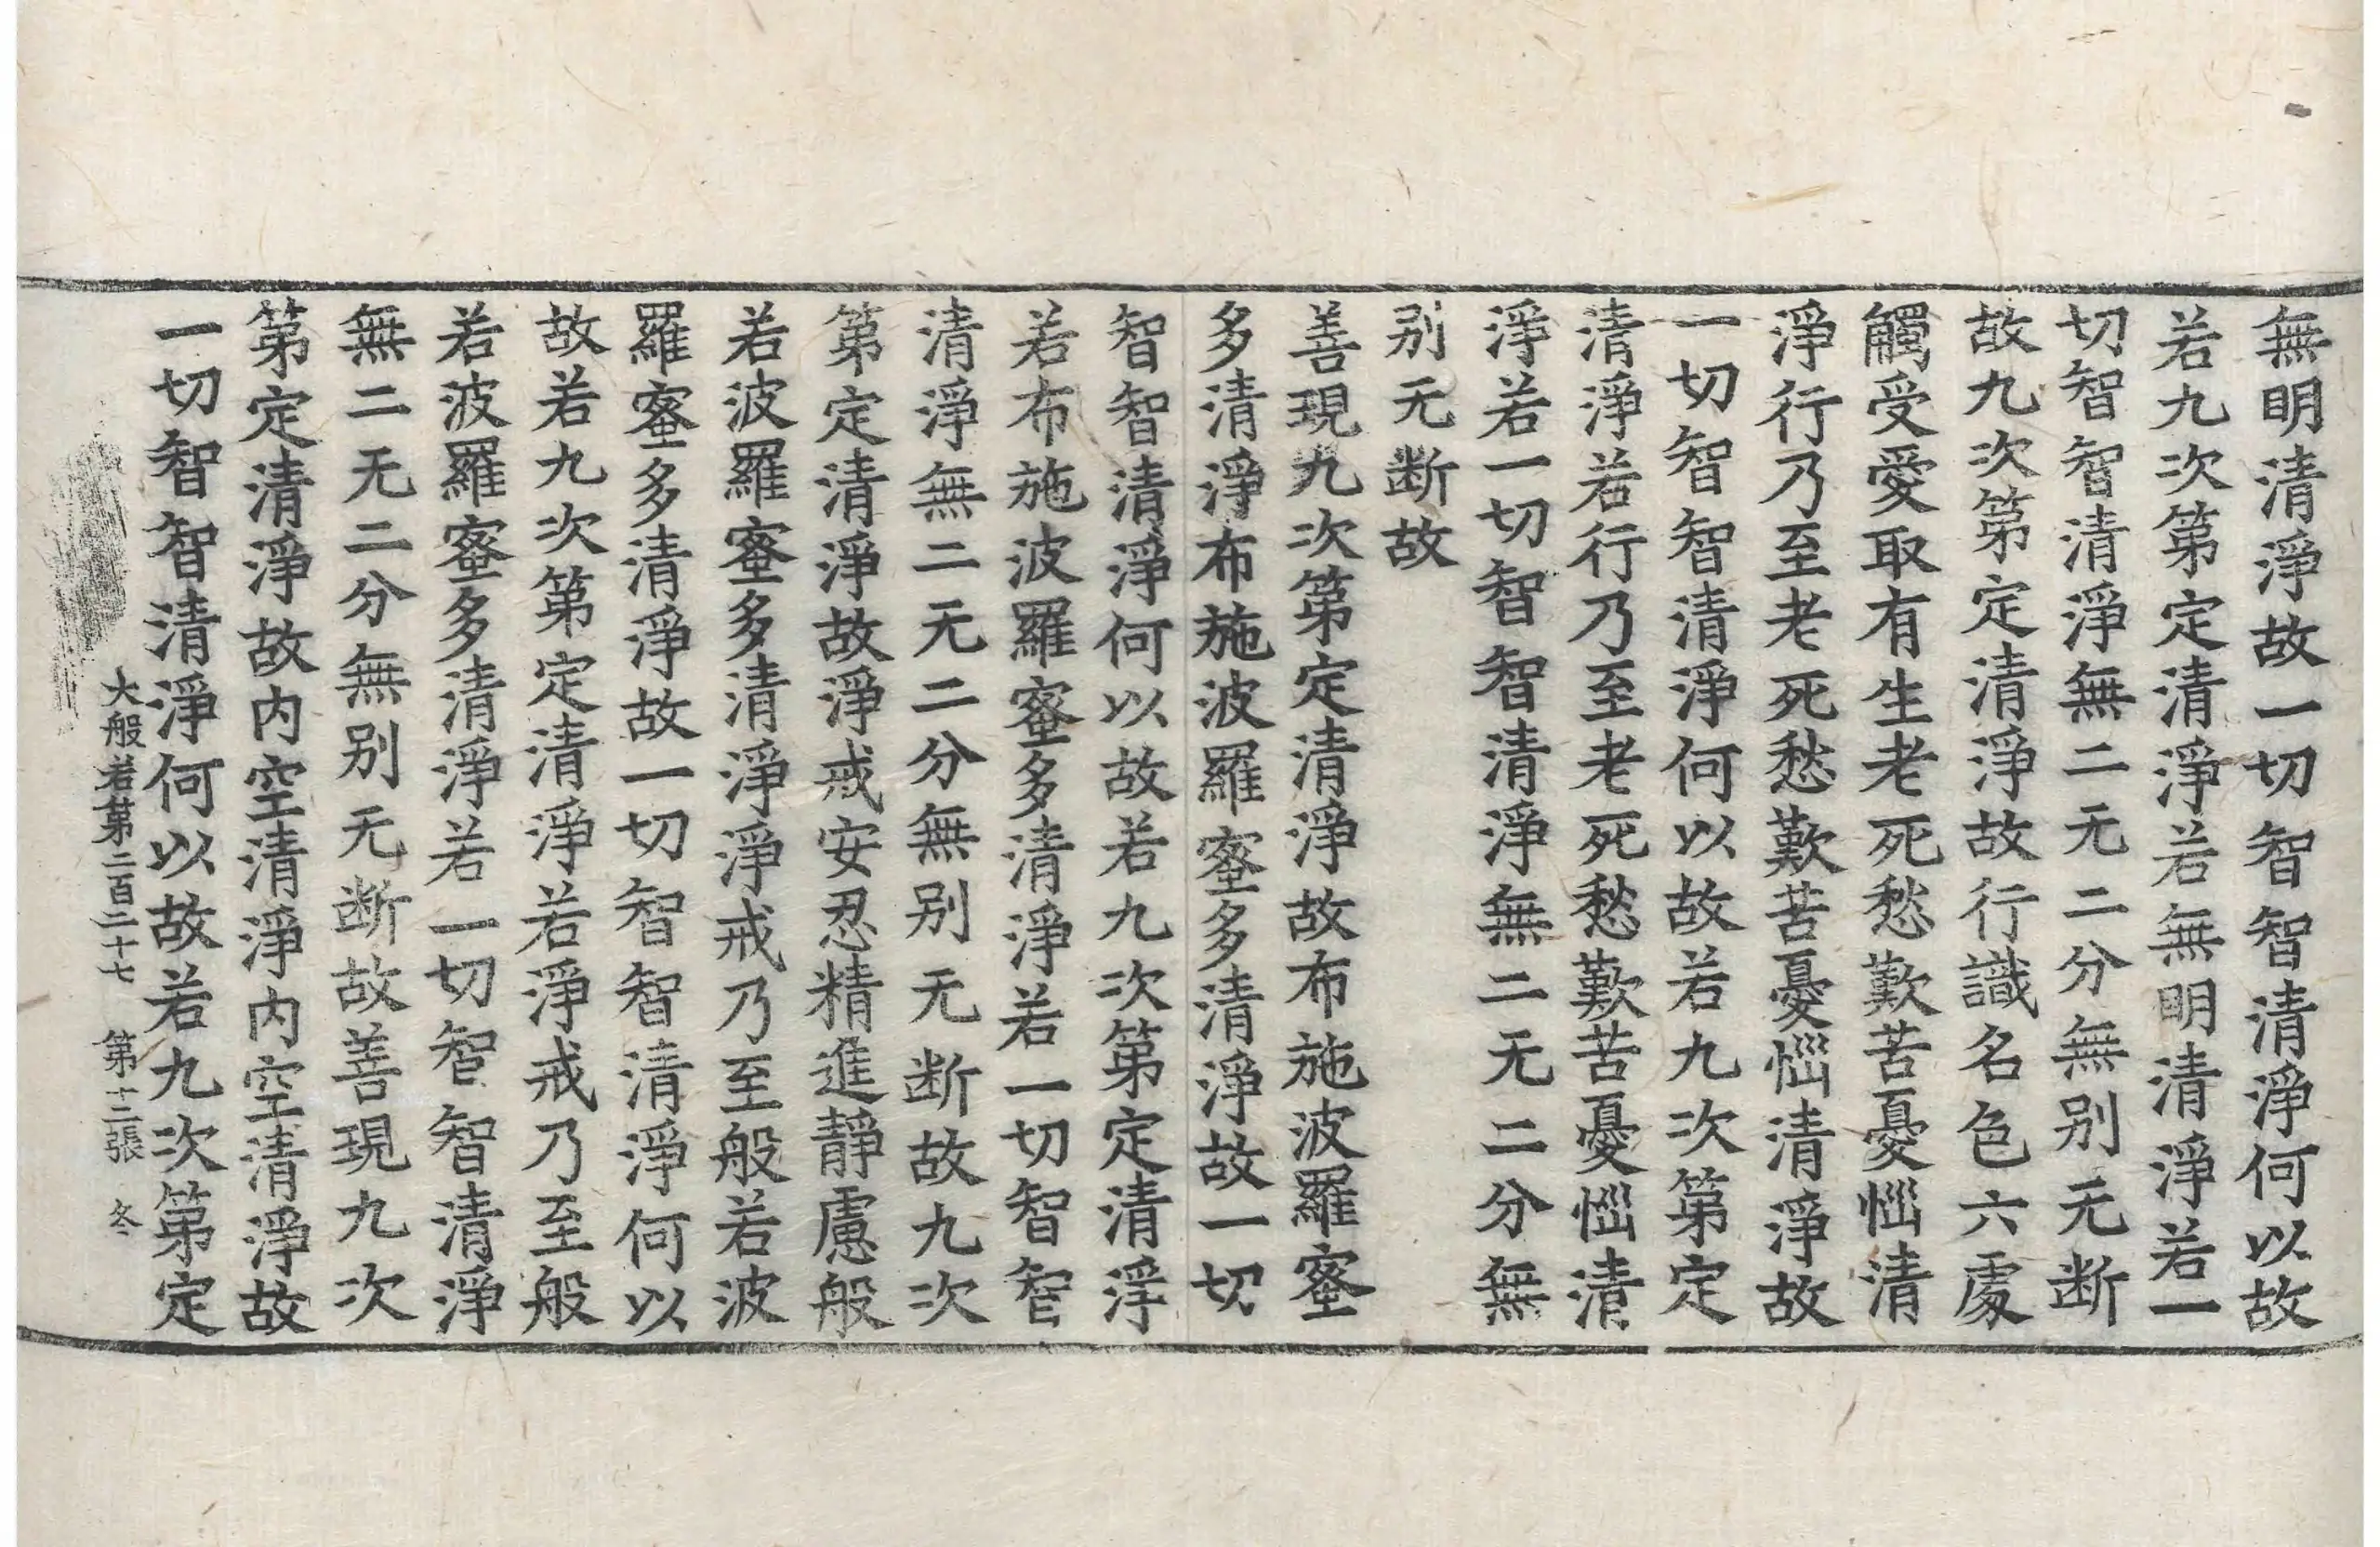 無明清淨故一切智智清淨何以故
若九次第定清淨若無明清淨若一
切智智清淨無二无二分無别无断
故九次第定清淨故行識名色六處
觸受愛取有生老死愁歎苦憂惱清
淨行乃至老死愁歎苦憂惱清淨故
一切智智清淨何以故若九次第定
清淨若行乃至老死愁歎苦憂惱清
淨若一切智智清淨無二无二分無
别无断故
善現九次第定清淨故布施波羅蜜
多清淨布施波羅蜜多清淨故一切
智智清淨何以故若九次第定清淨
若布施波羅蜜多清淨若一切智智
清淨無二无二分無别无断故九次
第定清淨故淨戒安忍精進靜慮般
若波羅蜜多清淨淨戒乃至般若波
羅蜜多清淨故一切智智清淨何以
故若九次第定清淨若淨戒乃至般
若波羅蜜多清淨若一切智智清淨
無二无二分無别无断故善現九次
第定清淨故内空清淨内空清淨故
一切智智清淨何以故若九次第定
大般若第二百二十七 第十二張 冬